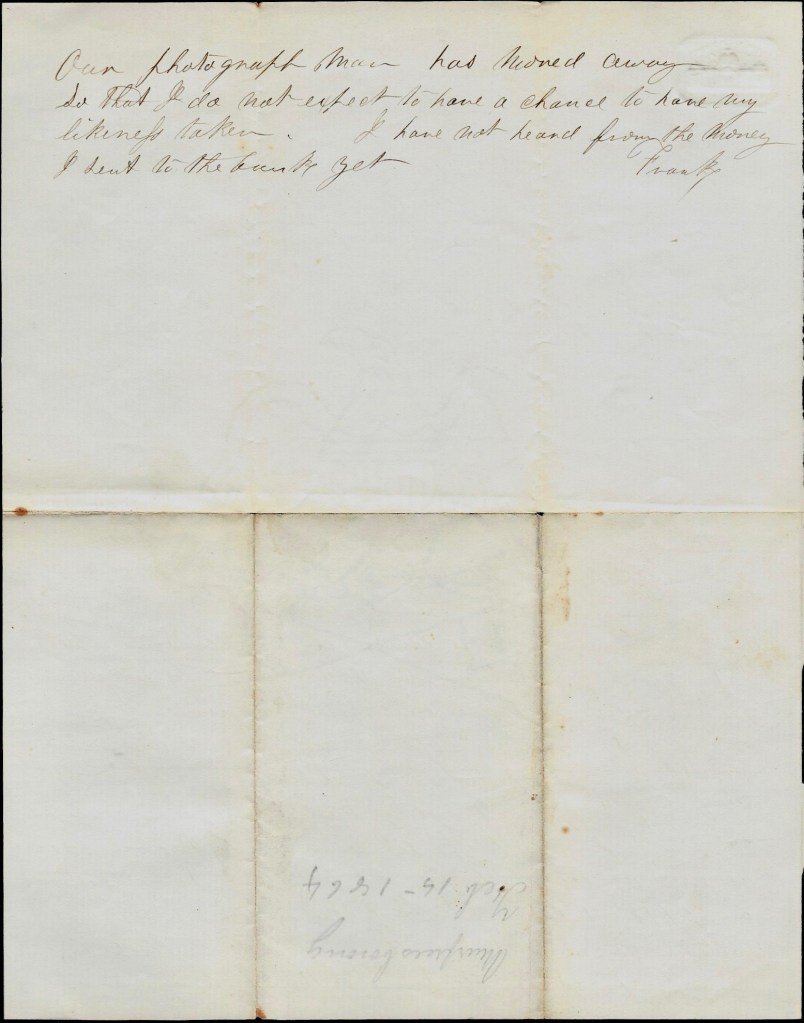 Our photograph man has moved away
So that I do not expect to have a chance to have my
likeness taken. I have not heard from the money
I sent to the bank yet Frank
Murfreesboroug
Feb 15 - 1864